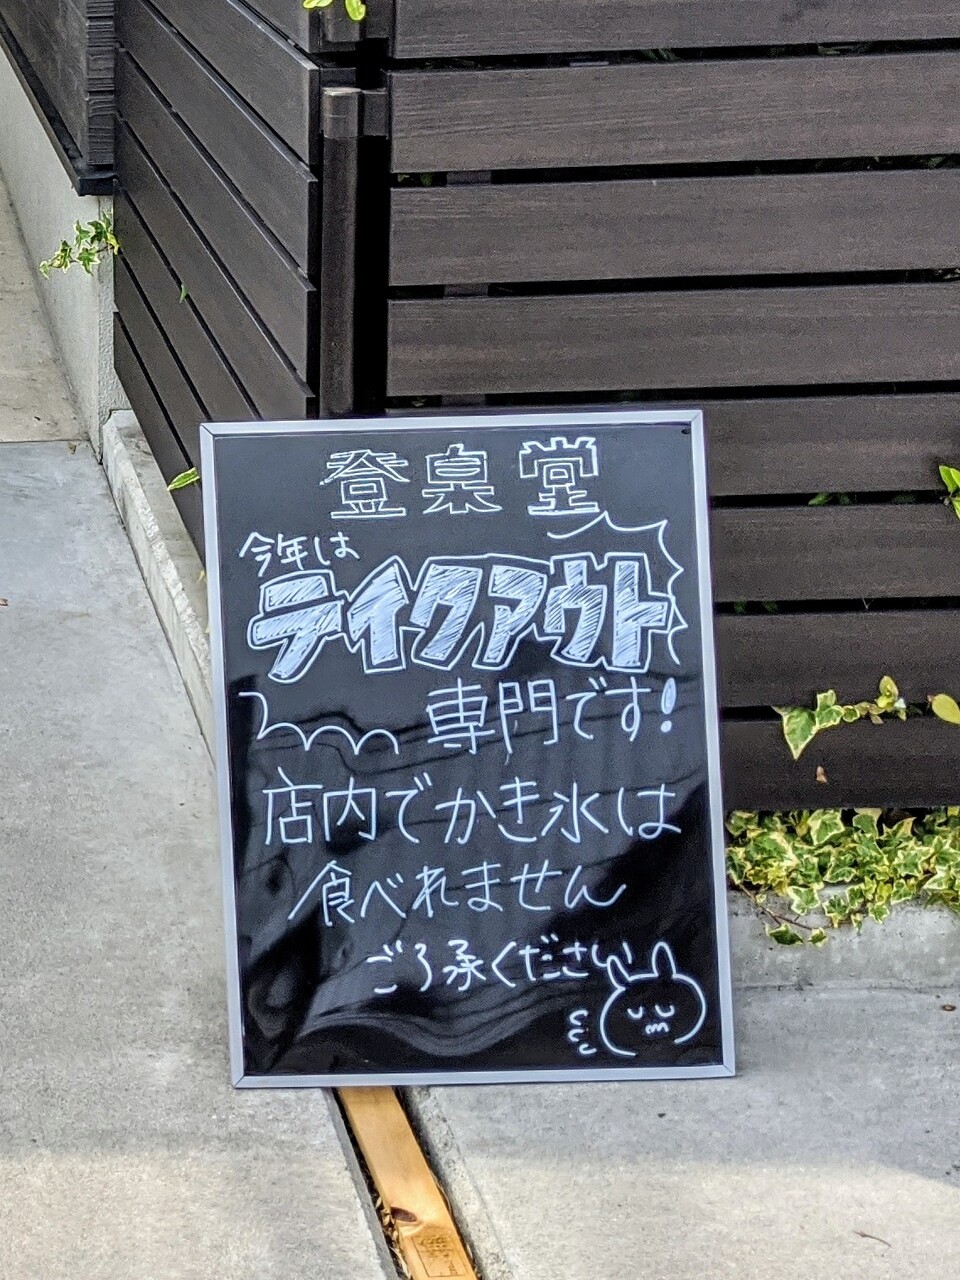 登泉堂
今年は
テイクアウト
専門です!
店内でかき氷は
食べれません
ご了承ください